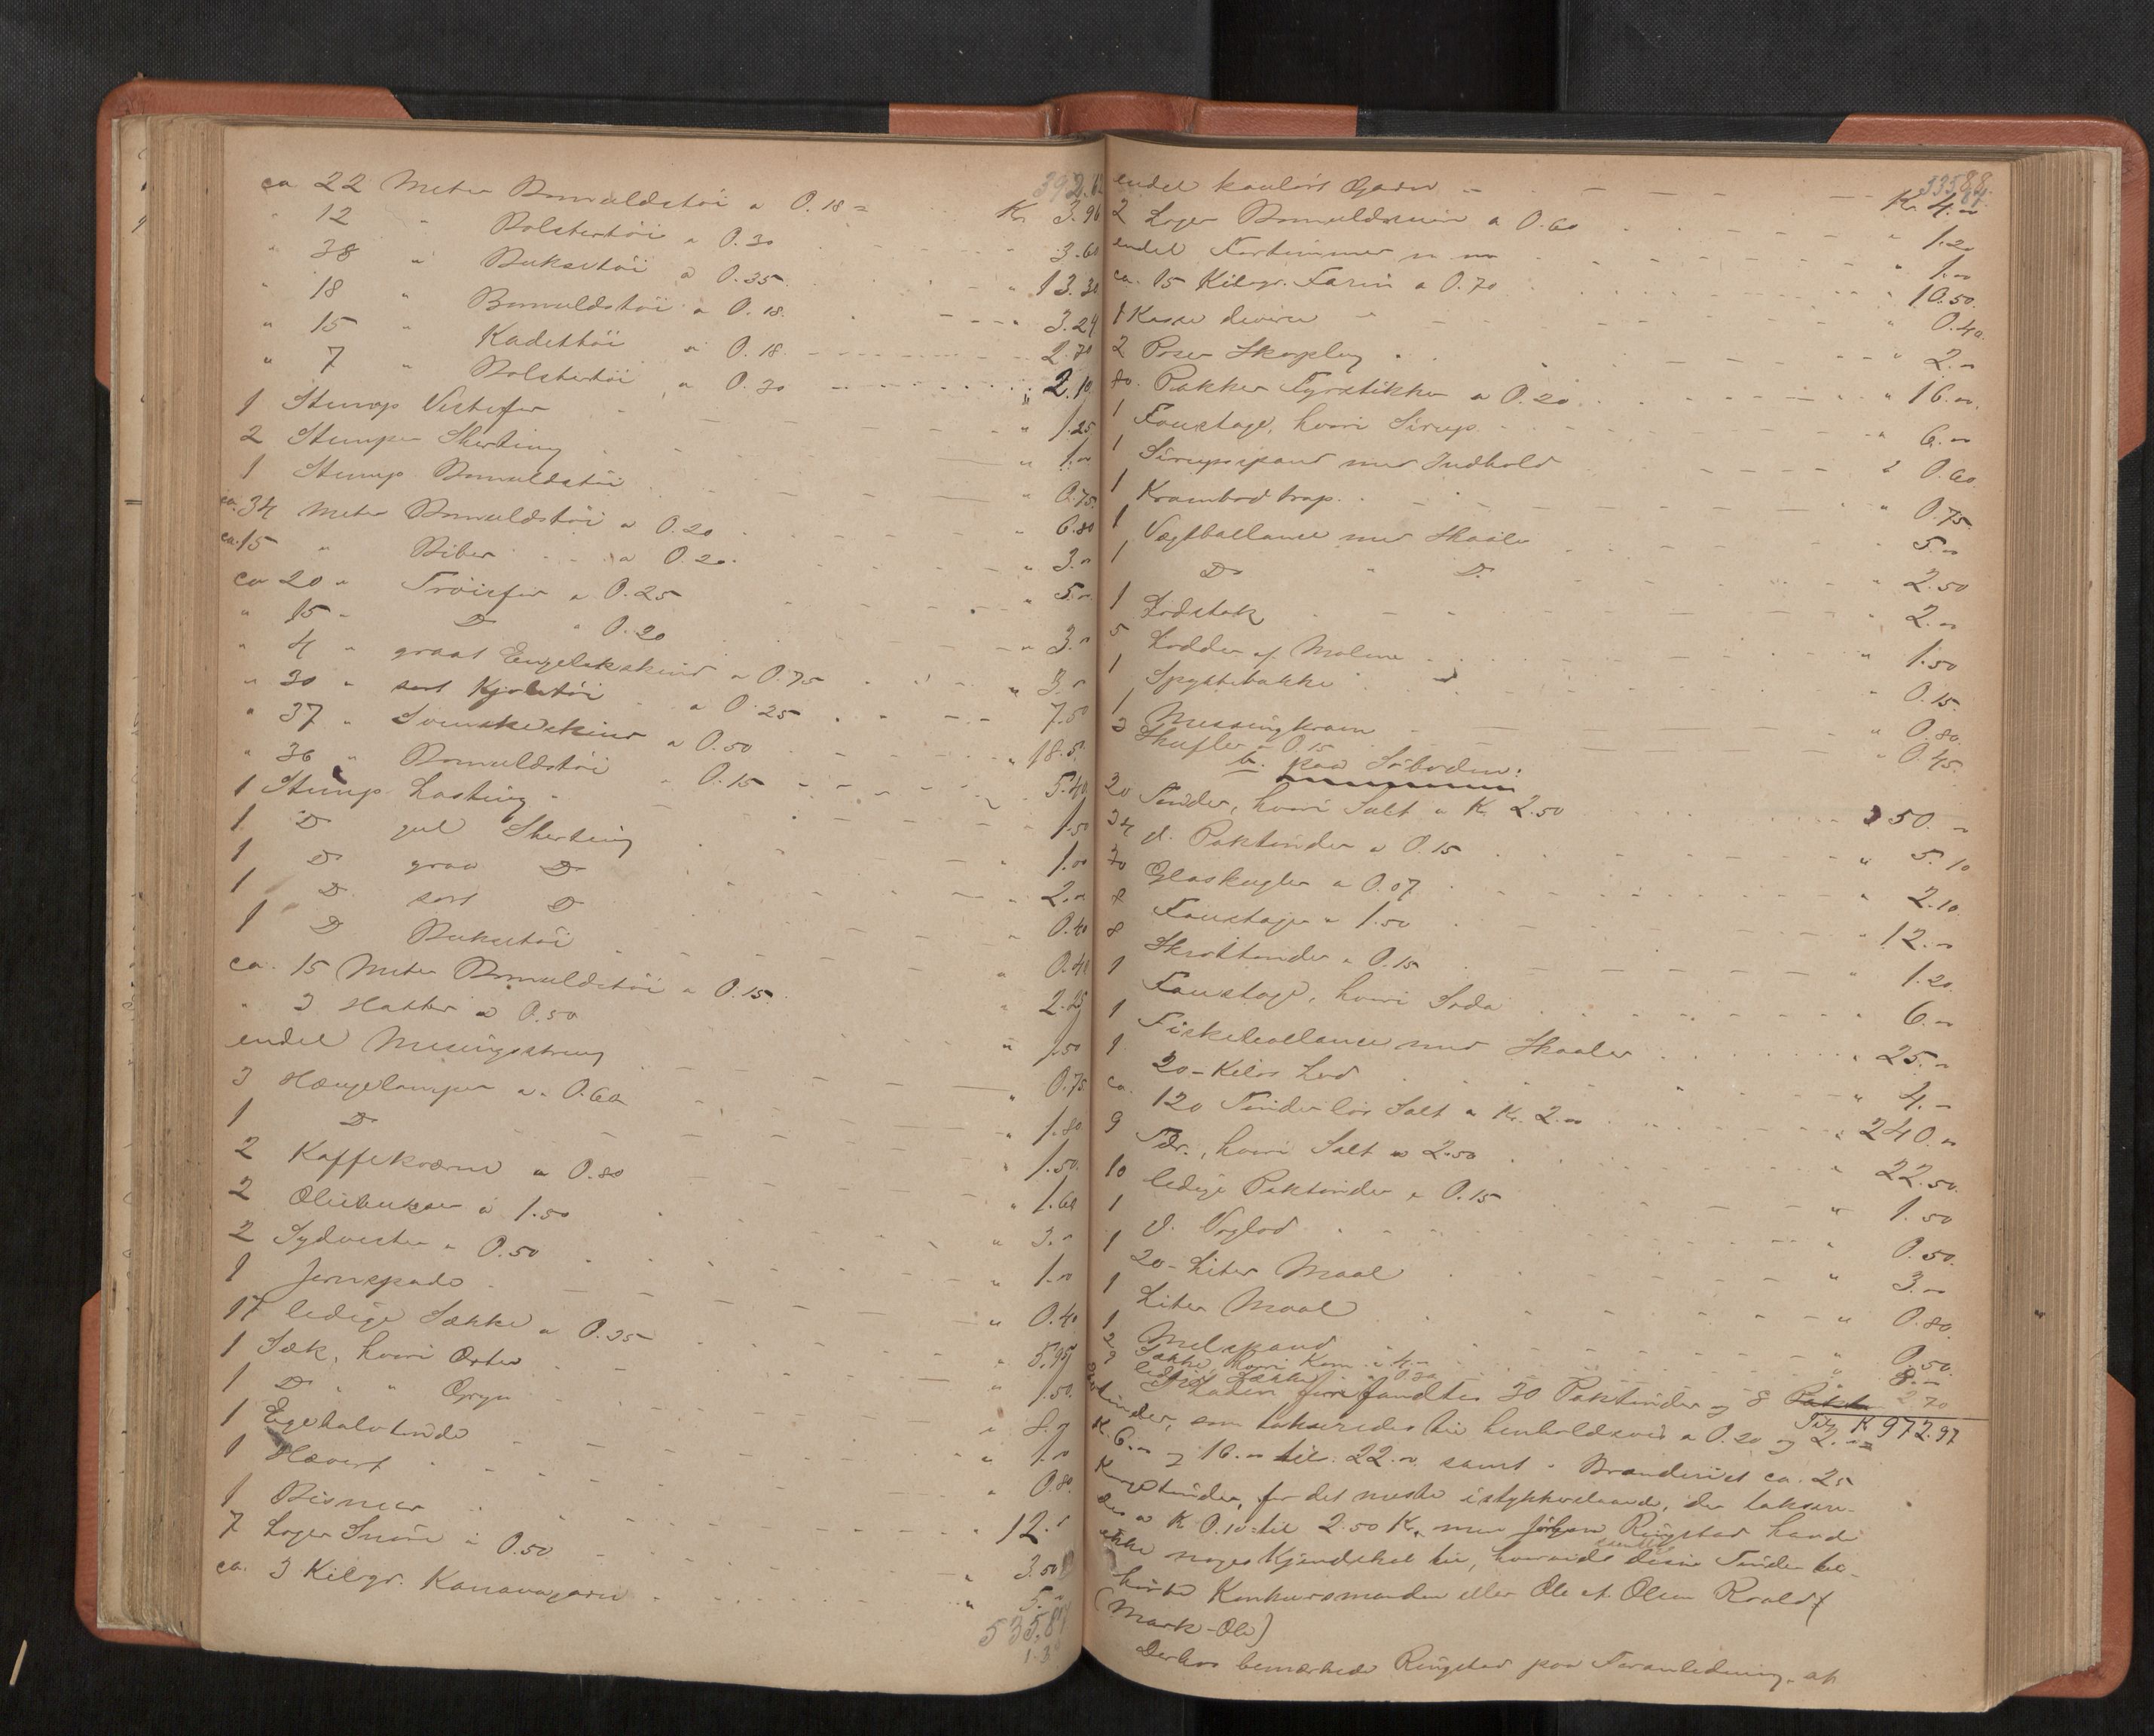 392.62
ca 22 Meter Bomuldstøi a 0.18 = Kr. 3.96
" 12 " Bolstertøi a 0.30 3.60
" 38 " Buksetøi a 0.35 " 13.30
" 18 " Bomuldstøi a 0.18. 3.24
" 15 " Kadettøi a 0.18. 2.70
" 7 " Bolstertøi a 0.30 " 2.10
1 Stump Vestefor " 1.25
2 Stumper Sherting " 1.00
1 Stump Bomuldstøi " 0.75.
ca. 34 Meter Bomuldstøi a 0.20 " 6.80
ca. 15 " Biber a 0.20. " 3.-
ca 20 " Trøiefor a 0.25 " 5.-
" 15 " Do " 0.20 " 3.-
" 4 " graat Engelskskind a 0.75 " 3.-
" 30 " sort Kjoletøi a 0.25 7.50
" 37 " Svenskeskind a 0.50 " 18.50
" 36 " Bomuldstøi " 0.15 5.40
1 Stump Lasting 1.50
1 Do gul Sherting 1.00
1 Do graa Do " 2.-
1 Do sort Do " 0.40
1 Do Buksetøi " 0.40
ca. 15 Meter Bomuldstøi a 0.15. " 2.25
" 3 Hatter a 0.50 " 1.50
endel Messingstreng " 0.75
3 Hængelamper a 0.60 " 1.80
1 Do " 1.50.
2 Kaffekværne a 0.80 " 1.60
2 Oliebukser a 1.50 " 3.-
2 Sydvester a 0.50 " 1.-
1 Jernspade " 0.40
17 ledige Sække a 0.35 " 5.95
1 Sæk, hvori Erter " 1.50.
1 Do " " Gryn " 8.-
1 Egehalvtønde " 1.-
1 Hævert " 0.80.
1 Bismer " 12.-
7 Loger Snøre a 0.50 " 3.50
ca. 3 Kilogr. Kanavagarn " 5.-
535.87
endel kaulørt Garn Kr. 4.-
2 Loger Bomuldssnøre a 0.60 " 1.20
endel " 1.-
ca. 15 Kilogr. Farin a 0.70 " 10.50.
1 Kasse diverse " 0.40.
2 Poser Skoplug " 2.-
80. Pakker Fyrstikker a 0.20. " 16.-
1 Foustage, hvori Sirup. " 6.-
1 Sirupsspand med Indhold " 0.60
1 Krambodtrap. " 0.75
1 Vægtballance med Skaaler 5.-
1 Do " Do " 2.50
1 Lodstok 2.-
5 Lodder af Malm " 1.50
1 Spyttebakke " 0.15.
1 Messingkram " 0.80.
3 Skufler a 0.15 " 0.45.
b. paa Søboden:
20 Tønder, hvori Salt a Kr 2.50 " 50.-
34 l. Paktønder a 0.15 " 5.10
30 Glaskugler a 0.07. " 2.10.
8 Foustager a 1.50 " 12.-
8 Skrottønder a 0.15 " 1.20.
1 Foustage, hvori Soda " 6.-
1 Fiskeballance med Skaaler " 25.-
1 20-Kilos Lod " 4.-
ca. 120 Tønder løs Salt a Kr. 2.- " 240.-
9 Tdr., hvori Salt a 2.50 " 22.50.
10 ledige Paktønder a 0.15 " 1.50
1 l. Voglod " 0.50.
1 20-Liter Maal " 3.-
1 Liter Maal " 0.80.
1 Melspand " 0.50.
2 Sække, hvori Korn a 4.- " 8.-
9 ledige Sække a 0.30 2.70
Kr 972.97
I Laden fandtes 30 Paktønder og 8
tønder, som takseredes til henholdsvis a 0.20 og 2.-=
K. 6.- og 16.- til 22.-. samt i Brænderiet ca. 25
tønder, for det meste istykkerslaaede, der takser-
des a Kr. 0.10 = til 2.50 Kr, men Jørgen Ringstad havde
ikke noget Kjendskab til, hvorvidt disse Tønder til-
hørte Konkursmanden eller Ole A. Olsen Roald
(Mark-Ole)
Derhos bemærkede Ringstad paa Foranledning, at